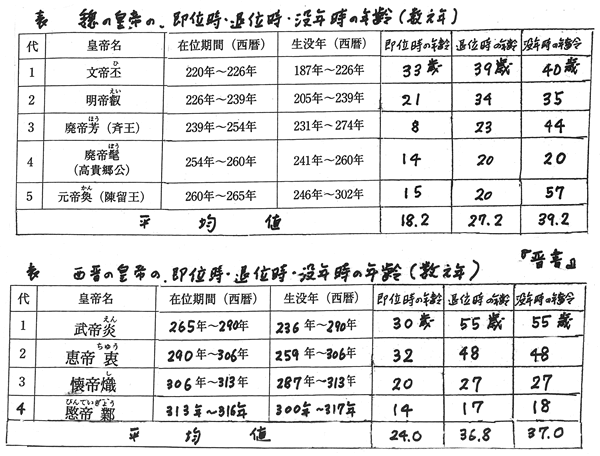 表 魏の皇帝の、即位時・退位時・没年時の年齢(数え年)
代 皇帝名 在位期間(西暦) 生没年(西暦) 即位時の年齢 退位時の年齢 没年時の年齢
1 文帝丕 ひ 220年〜226年 187年〜226年 33歳 39歳 40歳
2 明帝叡 えい 226年〜239年 205年〜239年 21 34 35
3 廃帝芳(斉王) ほう 239年〜254年 231年〜274年 8 23 44
4 廃帝髦 ぼう (高貴郷公) 254年〜260年 241年〜260年 14 20 20
5 元帝奐(陳留王) かん 260年〜265年 246年〜302年 15 20 57
平均値 18.2 27.2 39.2
『晋書』
表 西晋の皇帝の、即位時・退位時・没年時の年齢(数え年)
代 皇帝名 在位期間(西暦) 生没年(西暦) 即位時の年齢 退位時の年齢 没年時の年齢
1 武帝炎 えん 265年〜290年 236年〜290年 30歳 55歳 55歳
2 恵帝衷 ちゅう 290年〜306年 259年〜306年 32 48 48
3 懐帝熾 し 306年〜313年 287年〜313年 20 27 27
4 愍帝鄴 びんていぎょう 313年〜316年 300年〜317年 14 17 18
平均値 24.0 36.8 37.0